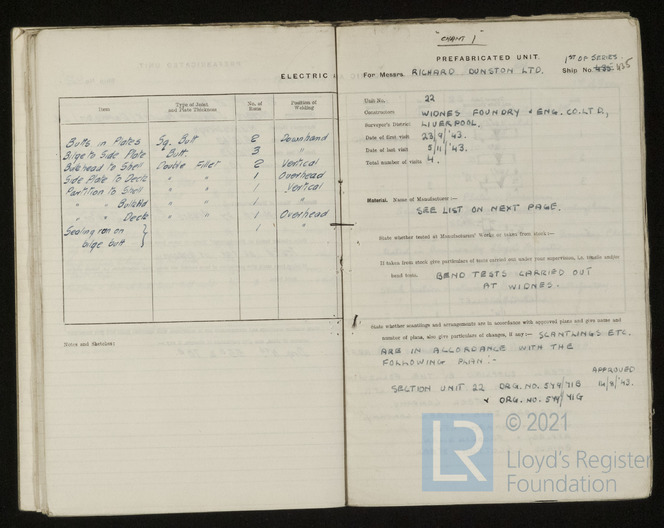 ELECTRIC
Item
Type of Joint
and Plate Thickness
No. of
Runs
Position of
Welding
Butts in Plates Sq. Butt 2 Downhand
Bilge to Side Plate " Butt. 3 "
Bulkhead to Shell Double Fillet 2 Vertical
Side Plate to Deck " " 1 Overhead
Partition to Shell " " 1 Vertical
" " Bulkhd " " 1 "
" " Deck " " 1 Overhead
Sealing run on
bilge butt } 1 "
Notes and Sketches:
"CHANT 1"
PREFABRICATED UNIT.
1ST OF SERIES.
For Messrs. RICHARD DUNSTON LTD. Ship No. 435
Unit No. 22
Constructors WIDNES FOUNDRY & ENG. CO. LTD.,
Surveyor's District LIVERPOOL.
Date of first visit 23/9/'43.
Date of last visit 5/11/'43.
Total number of visits 4.
Material. Name of Manufacturer:—
SEE LIST ON NEXT PAGE.
State whether tested at Manufacturers' Works or taken from stock:—
If taken from stock give particulars of tests carried out under your supervision, i.e. tensile and/or
bend tests. BEND TESTS CARRIED OUT
AT WIDNES.
State whether scantlings and arrangements are in accordance with approved plans and give name and
number of plans, also give particulars of changes, if any:— SCANTLINGS ETC.
ARE IN ACCORDANCE WITH THE
FOLLOWING PLAN:-
APPROVED
SECTION UNIT 22 DRG. NO. 544/41B 16/8/'43.
& DRG. NO. 544/41G
LR © 2021
Lloyd's Register
Foundation